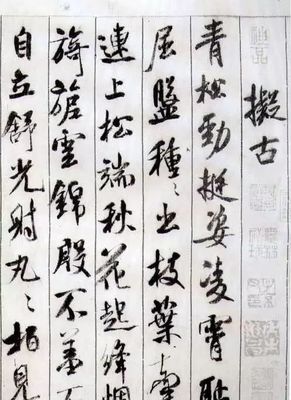 擬古
青松勁挺姿凌霄耻
屈盤種〻出枝葉牽
連上松端秋花起絳烟
旖旎雲錦殷不羞不
自立舒光射丸〻柏見